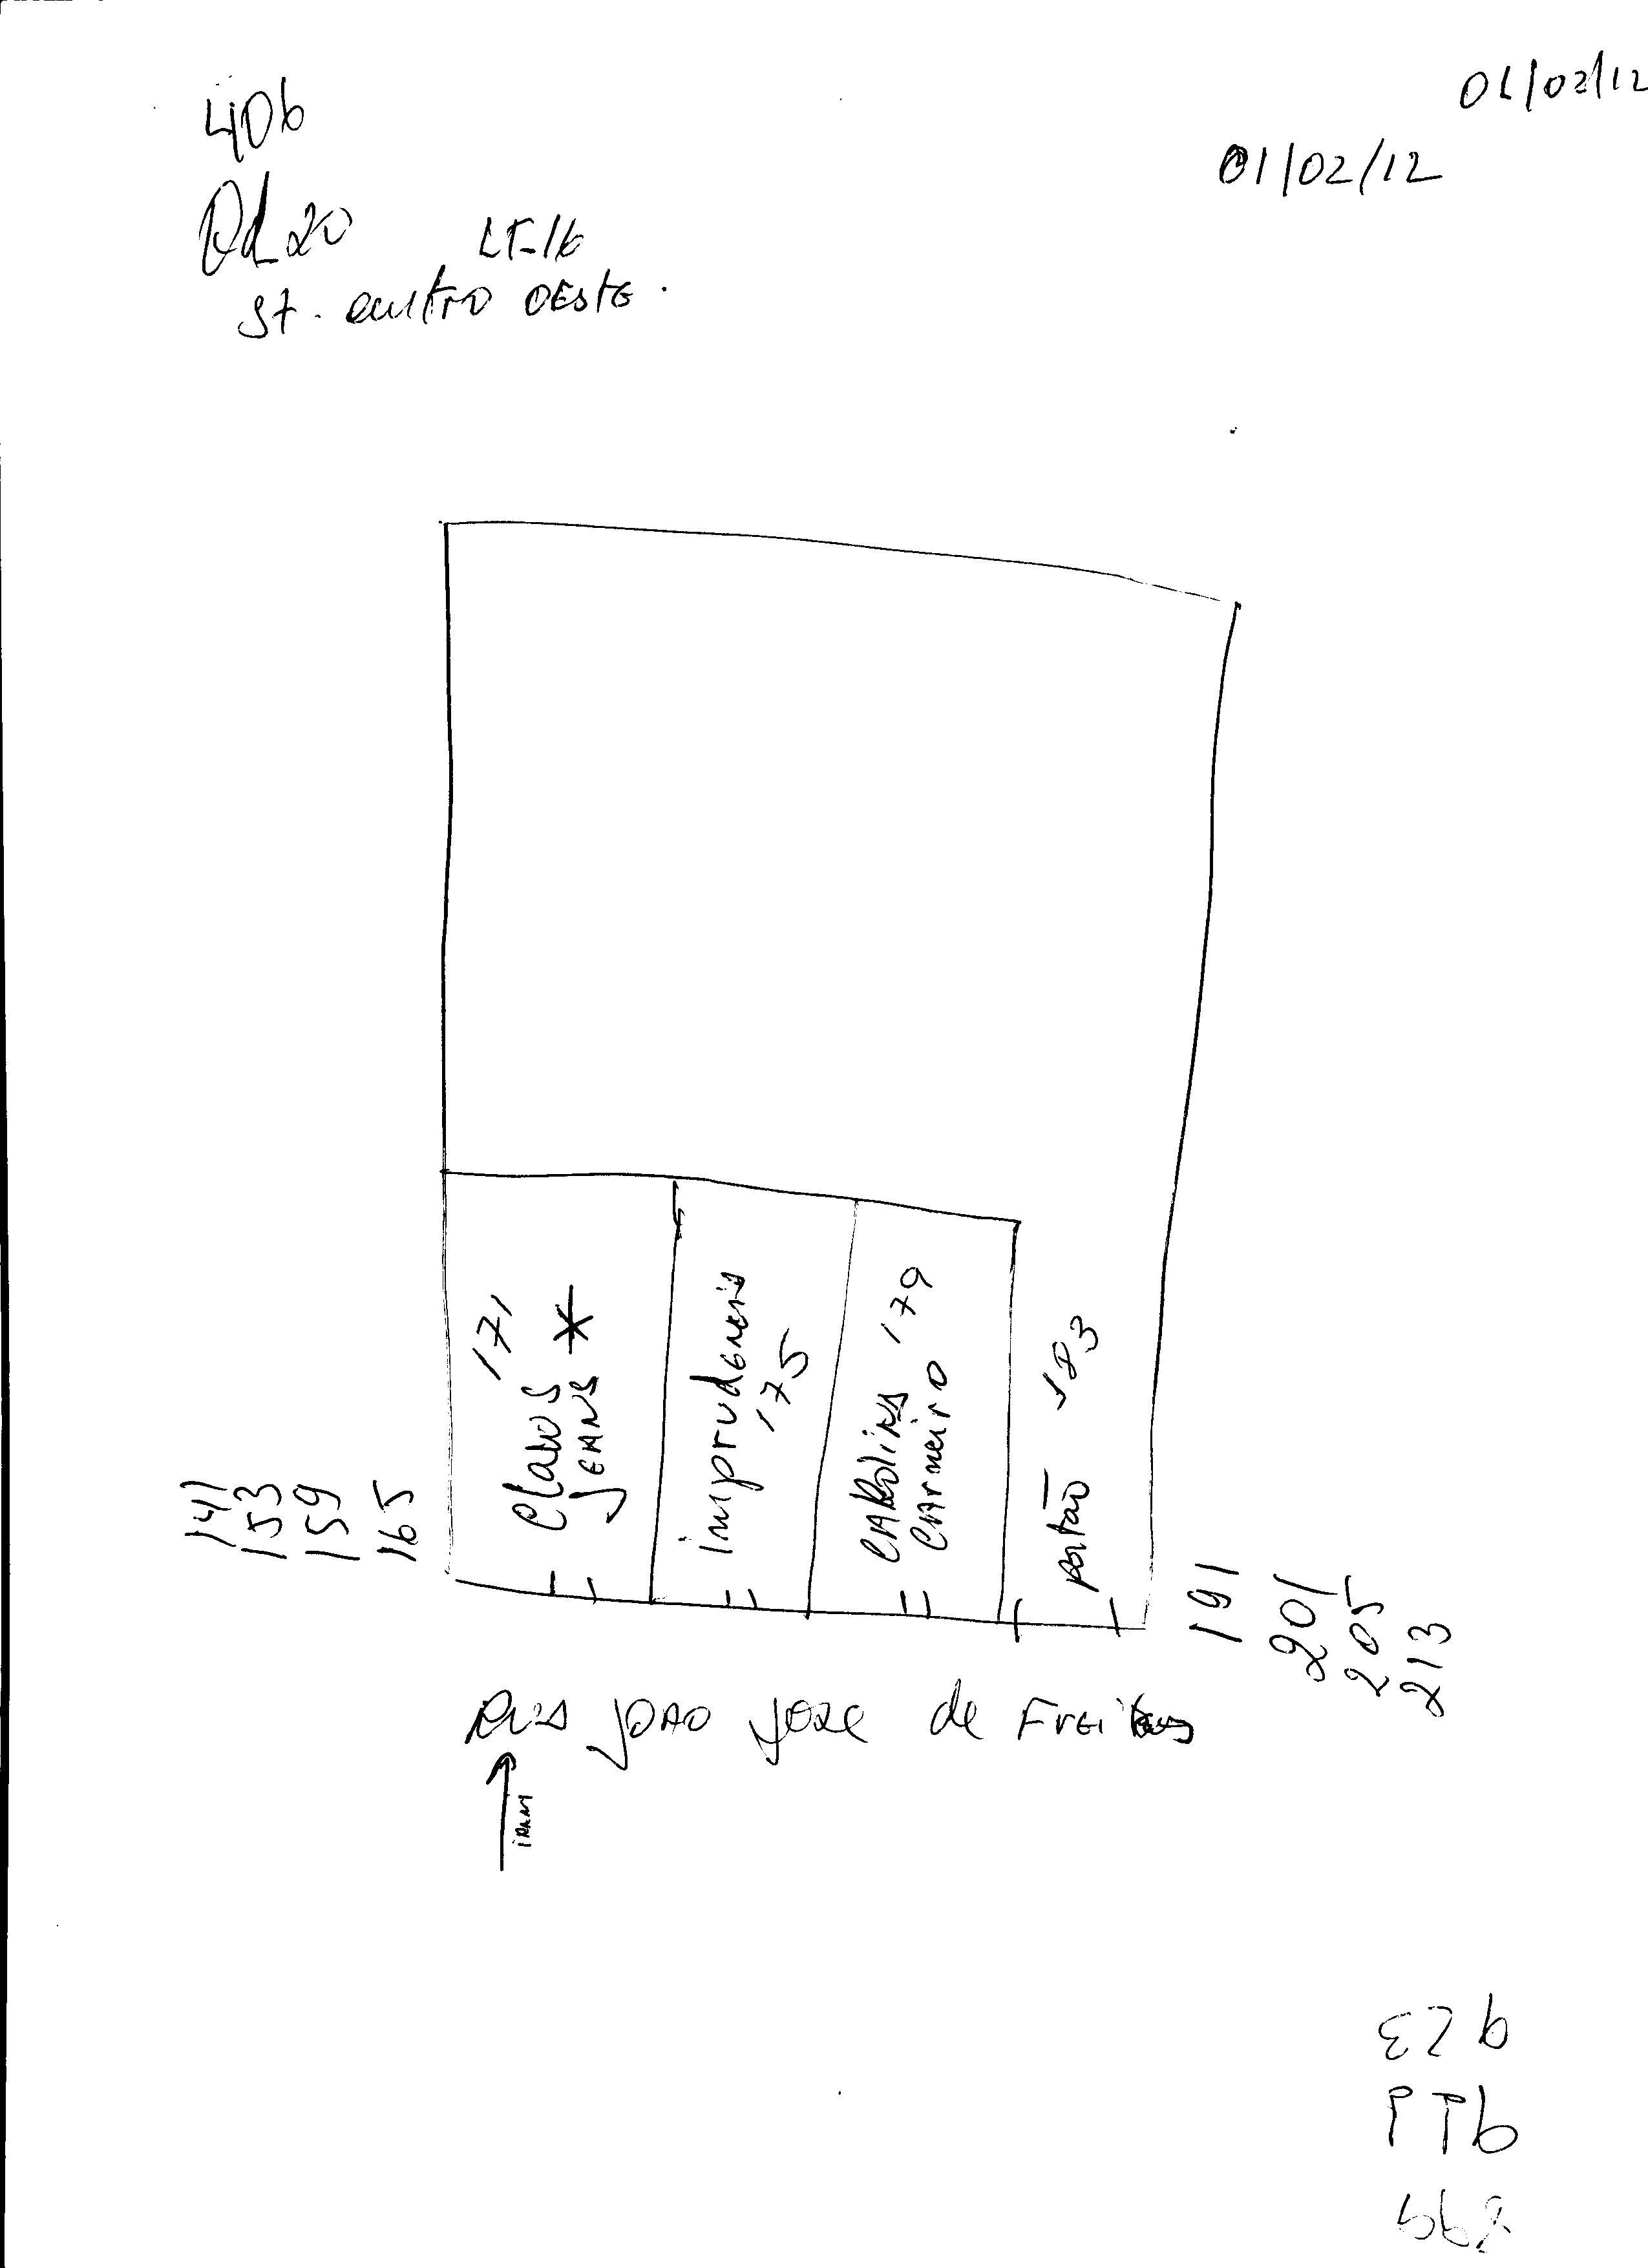 01/02/12
406
01/02/12
Qd 20 LT-16
St. centro OESTE.
141
153
159
165
171
Clavos
JEANS *
imprudencia
175
CAROLINA 179
CARNEIRO
portão 183
191
201
205
213
RUA JOAO JOSE de FREITAS
923